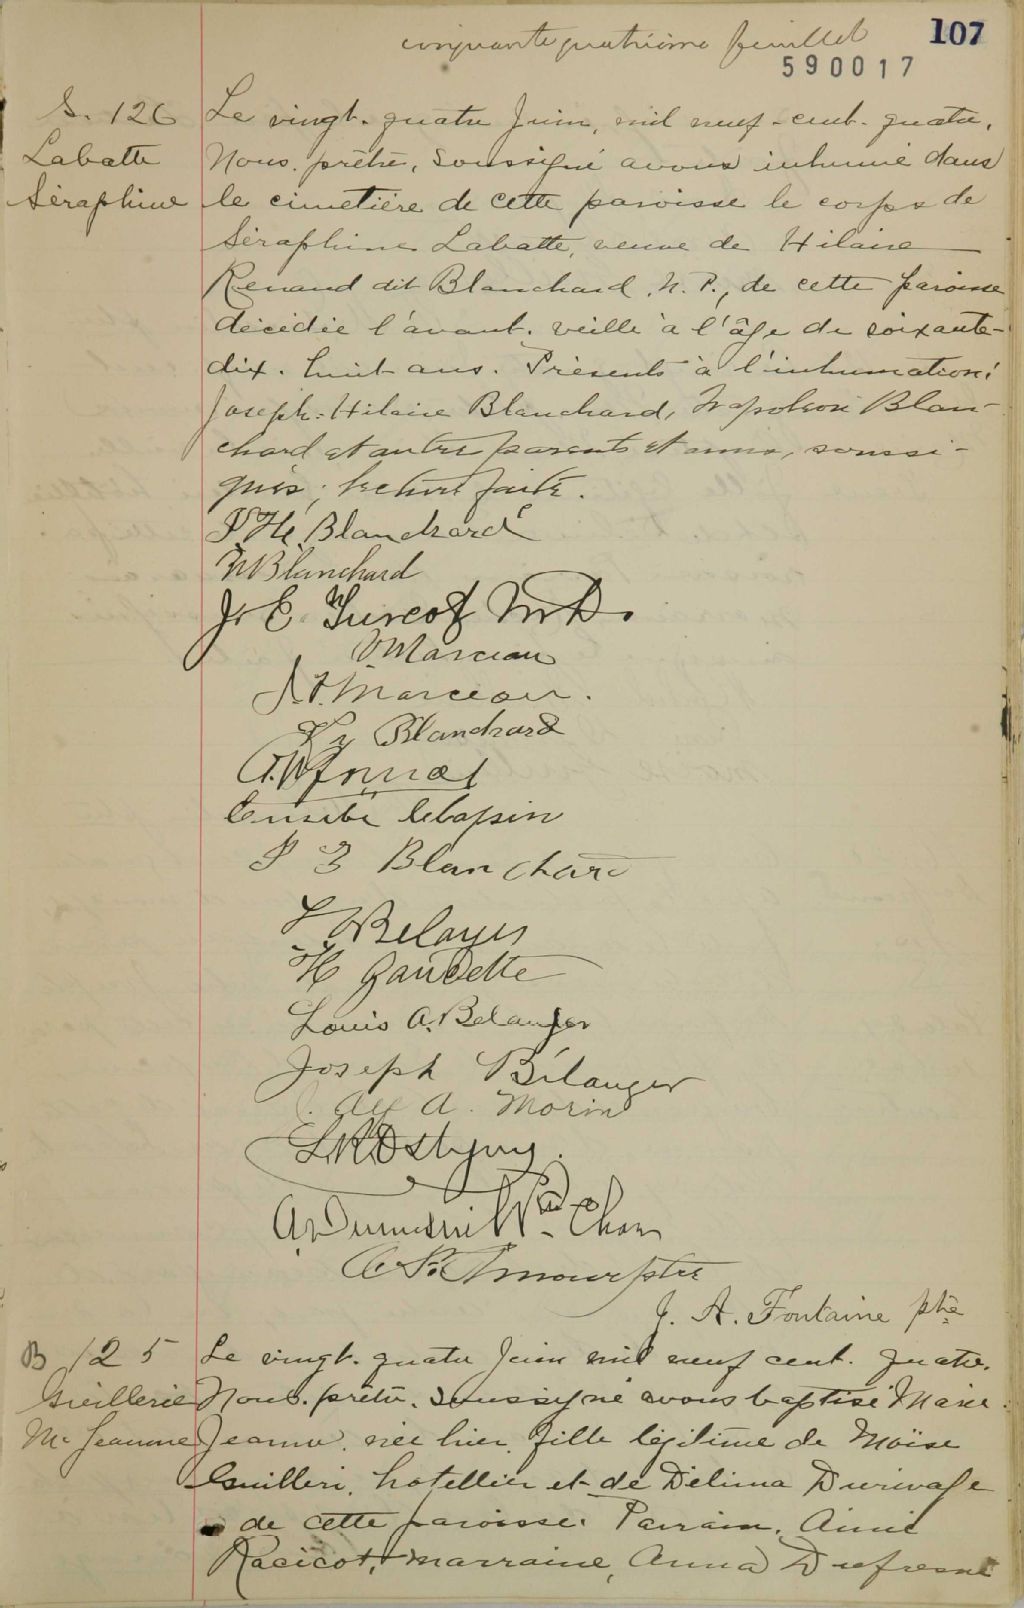 cinquante quatrième feuillet 107
590017
S. 126
Labatte
Séraphine
Le vingt-quatre Juin, mil neuf-cent-quatre,
Nous prêtre, soussigné avons inhumé dans
le cimetière de cette paroisse le corps de
Séraphine Labatte, veuve de Hilaire
Renaud dit Blanchard, N. P., de cette paroisse
décédée l'avant-veille à l'âge de soixante-
dix-huit ans. Présents à l'inhumation:
Joseph-Hilaire Blanchard, Napoléon Blan-
chard et autres parents et amis, soussi-
gnés; lecture faite.
J H Blanchard
N Blanchard
J. E. Turcot M.D.
Marceau
Marceau.
Blanchard
Eusèbe
J Z Blanchard
H Gaudette
Louis A. Belanger
Joseph Bélanger
A. Morin
J. A. Fontaine ptre
B 125
Guillerie
M. Jeanne
Le vingt-quatre Juin mil neuf cent-quatre.
Nous prêtre, soussigné avons baptisé Marie
Jeanne, née hier, fille légitime de Moïse
Guilleri, hotellier et de Délima Durivage
de cette paroisse. Parrain, Aimé
Racicot, marraine, Anna Dufresne